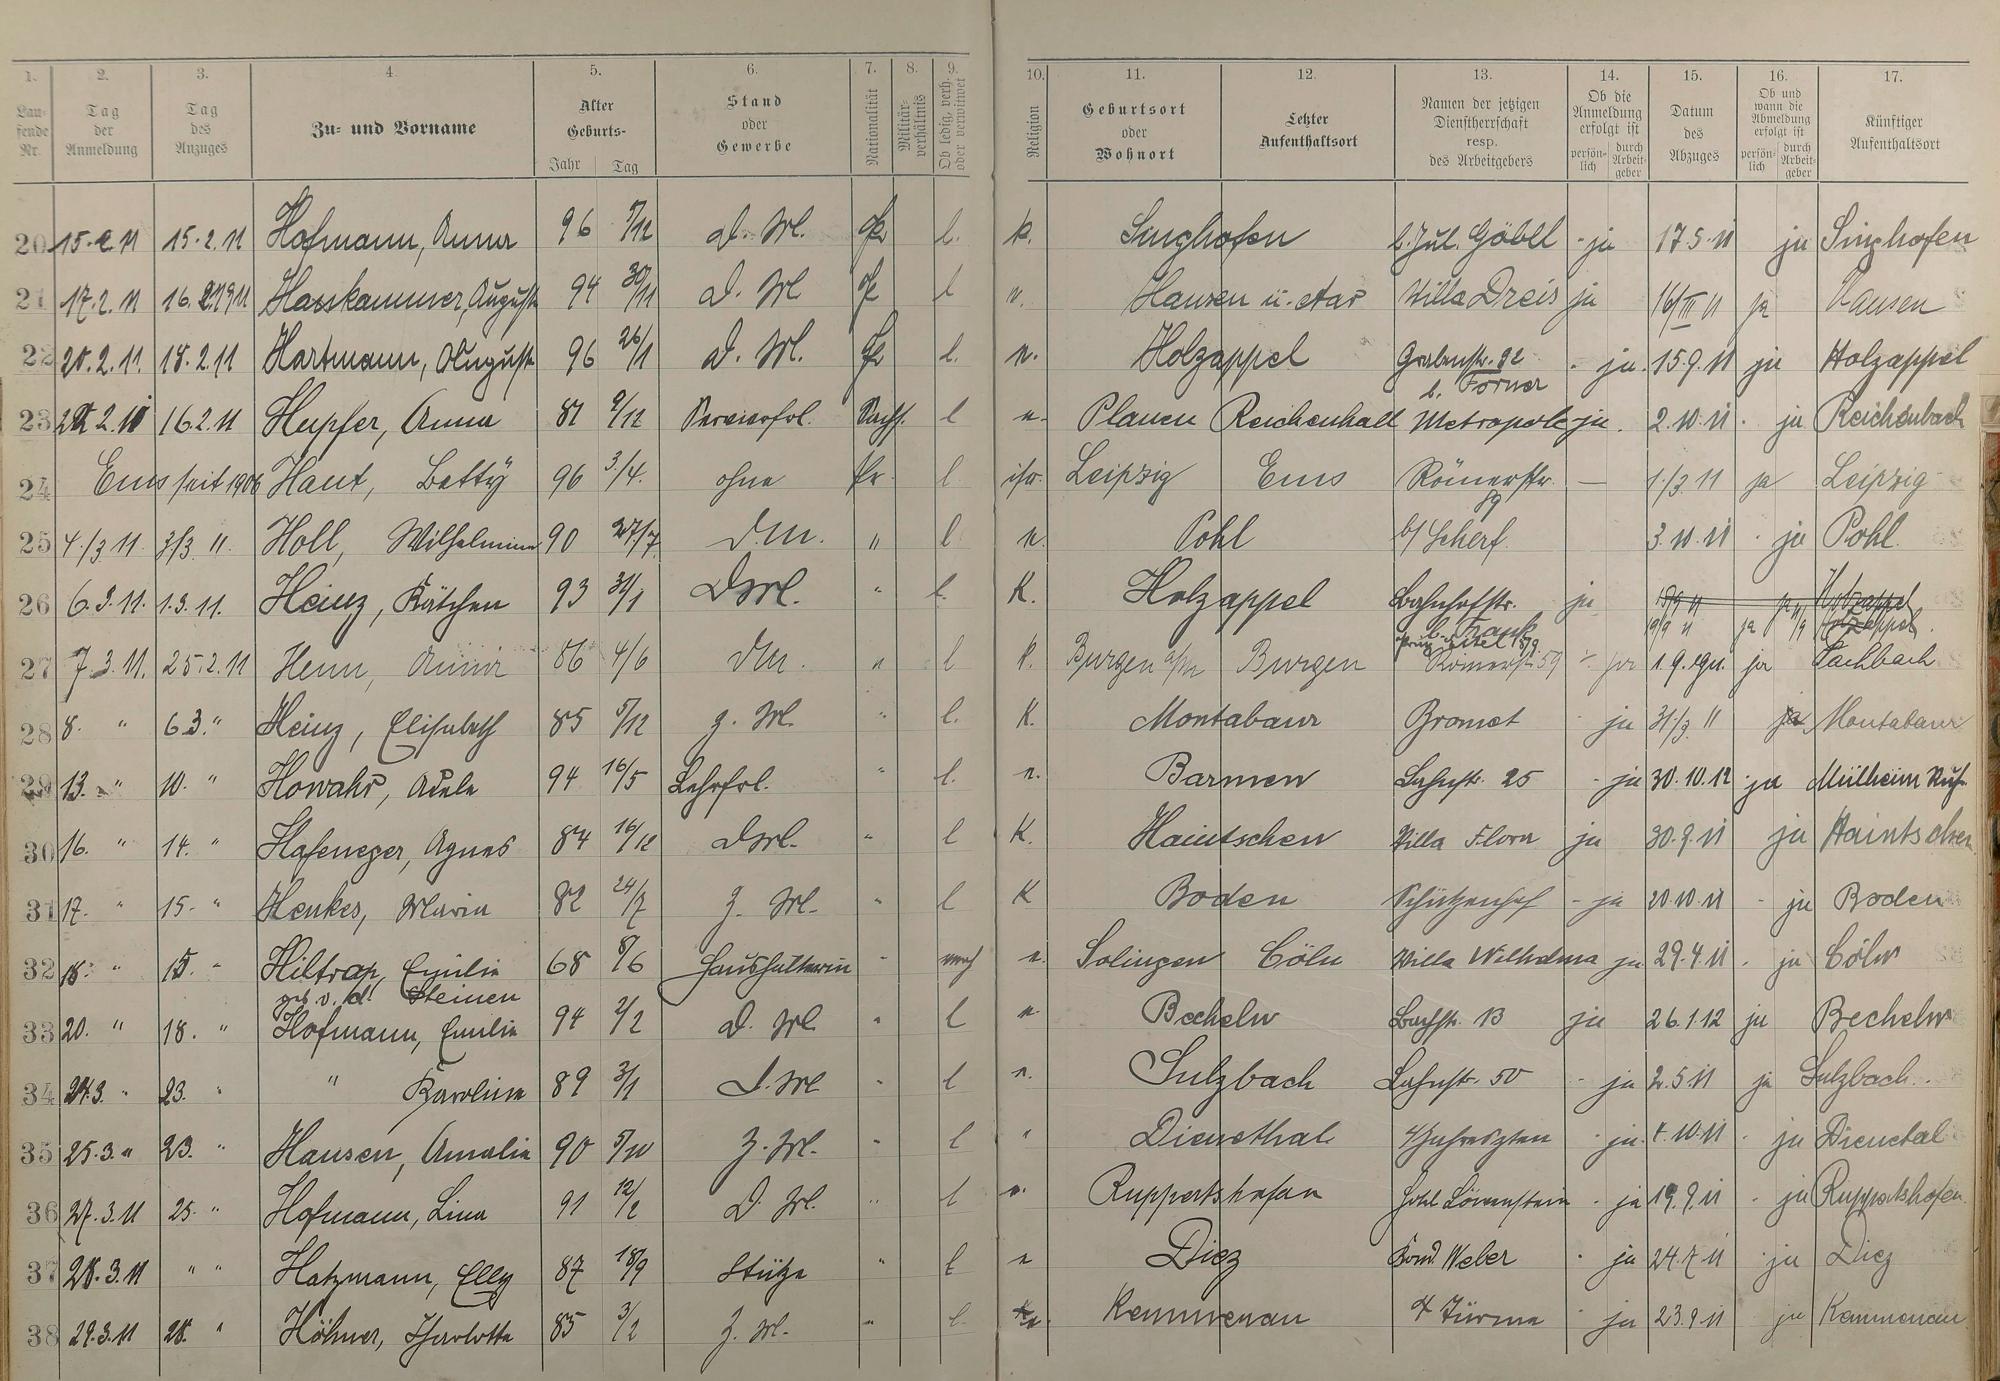 1. 2. 3. 4. 5. 6. 7. 8. 9. 10. 11. 12. 13. 14. 15. 16. 17.
Lau-fende Nr. Tag der Anmeldung Tag des Anzuges Zu- und Vorname Alter Geburts- Jahr Tag Stand oder Gewerbe Nationalität Militär-verhältnis Ob ledig, verh. oder verwitwet Religion Geburtsort oder Wohnort Letzter Aufenthaltsort Namen der jetzigen Dienstherrschaft resp. des Arbeitgebers Ob die Anmeldung erfolgt ist persön-lich durch Arbeit-geber Datum des Abzuges Ob und wann die Abmeldung erfolgt ist persön-lich durch Arbeit-geber Künftiger Aufenthaltsort
20 15.2.11 15.2.11 Hofmann, Anna 96 5/12 D. M. l. k. Singhofen b. Jul. Göbel - ja 17.5.11 ja Singhofen
21 17.2.11 16.2.1911 94 30/11 D. M l Hausen ü. Aar Villa Dreis ja 16/III 11 ja Hausen
22 20.2.11. 18.2.11 Hartmann, August 96 26/1 D. M. l. n. Holzappel Grabenstr. 92 - ja. 15.9.11 ja Holzappel
b. Forner
23 16.2.11 Hupfer, Anna 81 9/12 l n. Plauen Reichenhall Metropole ja. 2.10.11. ja Reichenbach
24 Ems seit 1906 Haut, Betty 96 3./4. ohne l isr. Leipzig Ems Römerstr. — 1./3.11 ja Leipzig
25 4./3.11. 3/3.11. Holl, Wilhelmine 90 27./7. D.M. " l n. Pohl b/ Scherf. 3.10.11 . ja Pohl.
26 6.3.11. 1.3.11. Heinz, Kätchen 93 31/1 DM. " l. K. Holzappel Bahnhofstr. ja Holzappel
b. Frank 19/9 11 ja
27 7.3.11. 25.2.11 Henn, Anna 86 4/6 DM. " l k. Burgen a/M Burgen Römerstr. 59 - ja 1.9. ja Fachbach
28 8. " 6.3. " Heinz, Elisabeth 85 5/12 Z. M. " l. K. Montabaur Bromet - ja 31/3.11 ja Montabaur
29 13. " 10. " Howahr, Adele 94 16/5 Lehrfrl. " l. n. Barmen Lahnstr. 25 - ja 30.10.12 . ja Mülheim Ruhr.
30 16. " 14. " Hafeneger, Agnes 84 16/12 DM. " l K. Haintschen Villa Flora ja 30.9.11 ja Haintschen
31 17. " 15. " Henkes, Maria 82 24/7 Z. M. " l K Boden Schützenhof - ja 20.10.11 - ja Boden
32 18. " 15. " Hiltrop, Emilie 68 8/6 Haushälterin " n. Solingen Cöln Villa Wilhelma ja 29.4.11 . ja Cöln
geb. v. d. Steinen
33 20. " 18. " Hofmann, Emilie 94 2/2 D. M " l n Becheln Bachstr. 13 ja 26.1.12 ja Becheln
34 24.3. " 23. " " Karoline 89 3/1 D. M " l n. Sulzbach Lahnstr. 50 - ja 2.5.11 ja Sulzbach.
35 25.3. " 23. " Hansen, Amalie 90 5/10 Z. M. " l " Dienethal 4 Jahreszten - ja. 1.10.11 . ja Dienetal
36 27.3.11 25. " Hofmann, Lina 91 12/2 D. M. " l n. Ruppertshofen Hotel Löwenstein - ja 19.9.11 . ja Ruppertshofen
37 28.3.11 " " Hatzmann, Elly 87 18/9 Stütze " l n Diez Kond. Weber . ja 24.7.11 . ja Diez
38 29.3.11 28. " Höhner, Charlotte 85 3/2 Z. M. " l. n. Kemmenau 4 Türme - ja 23.9.11 ja Kemmenau